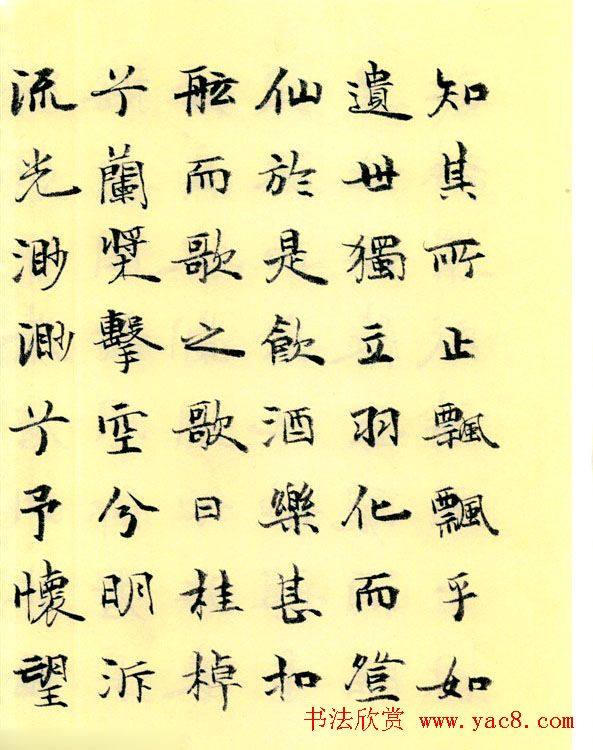 知其所止飄飄乎如
遺世獨立羽化而登
仙於是飲酒樂甚扣
舷而歌之歌曰桂棹
兮蘭槳擊空兮明泝
流光渺渺兮予懷望
书法欣赏 www.yac8.com